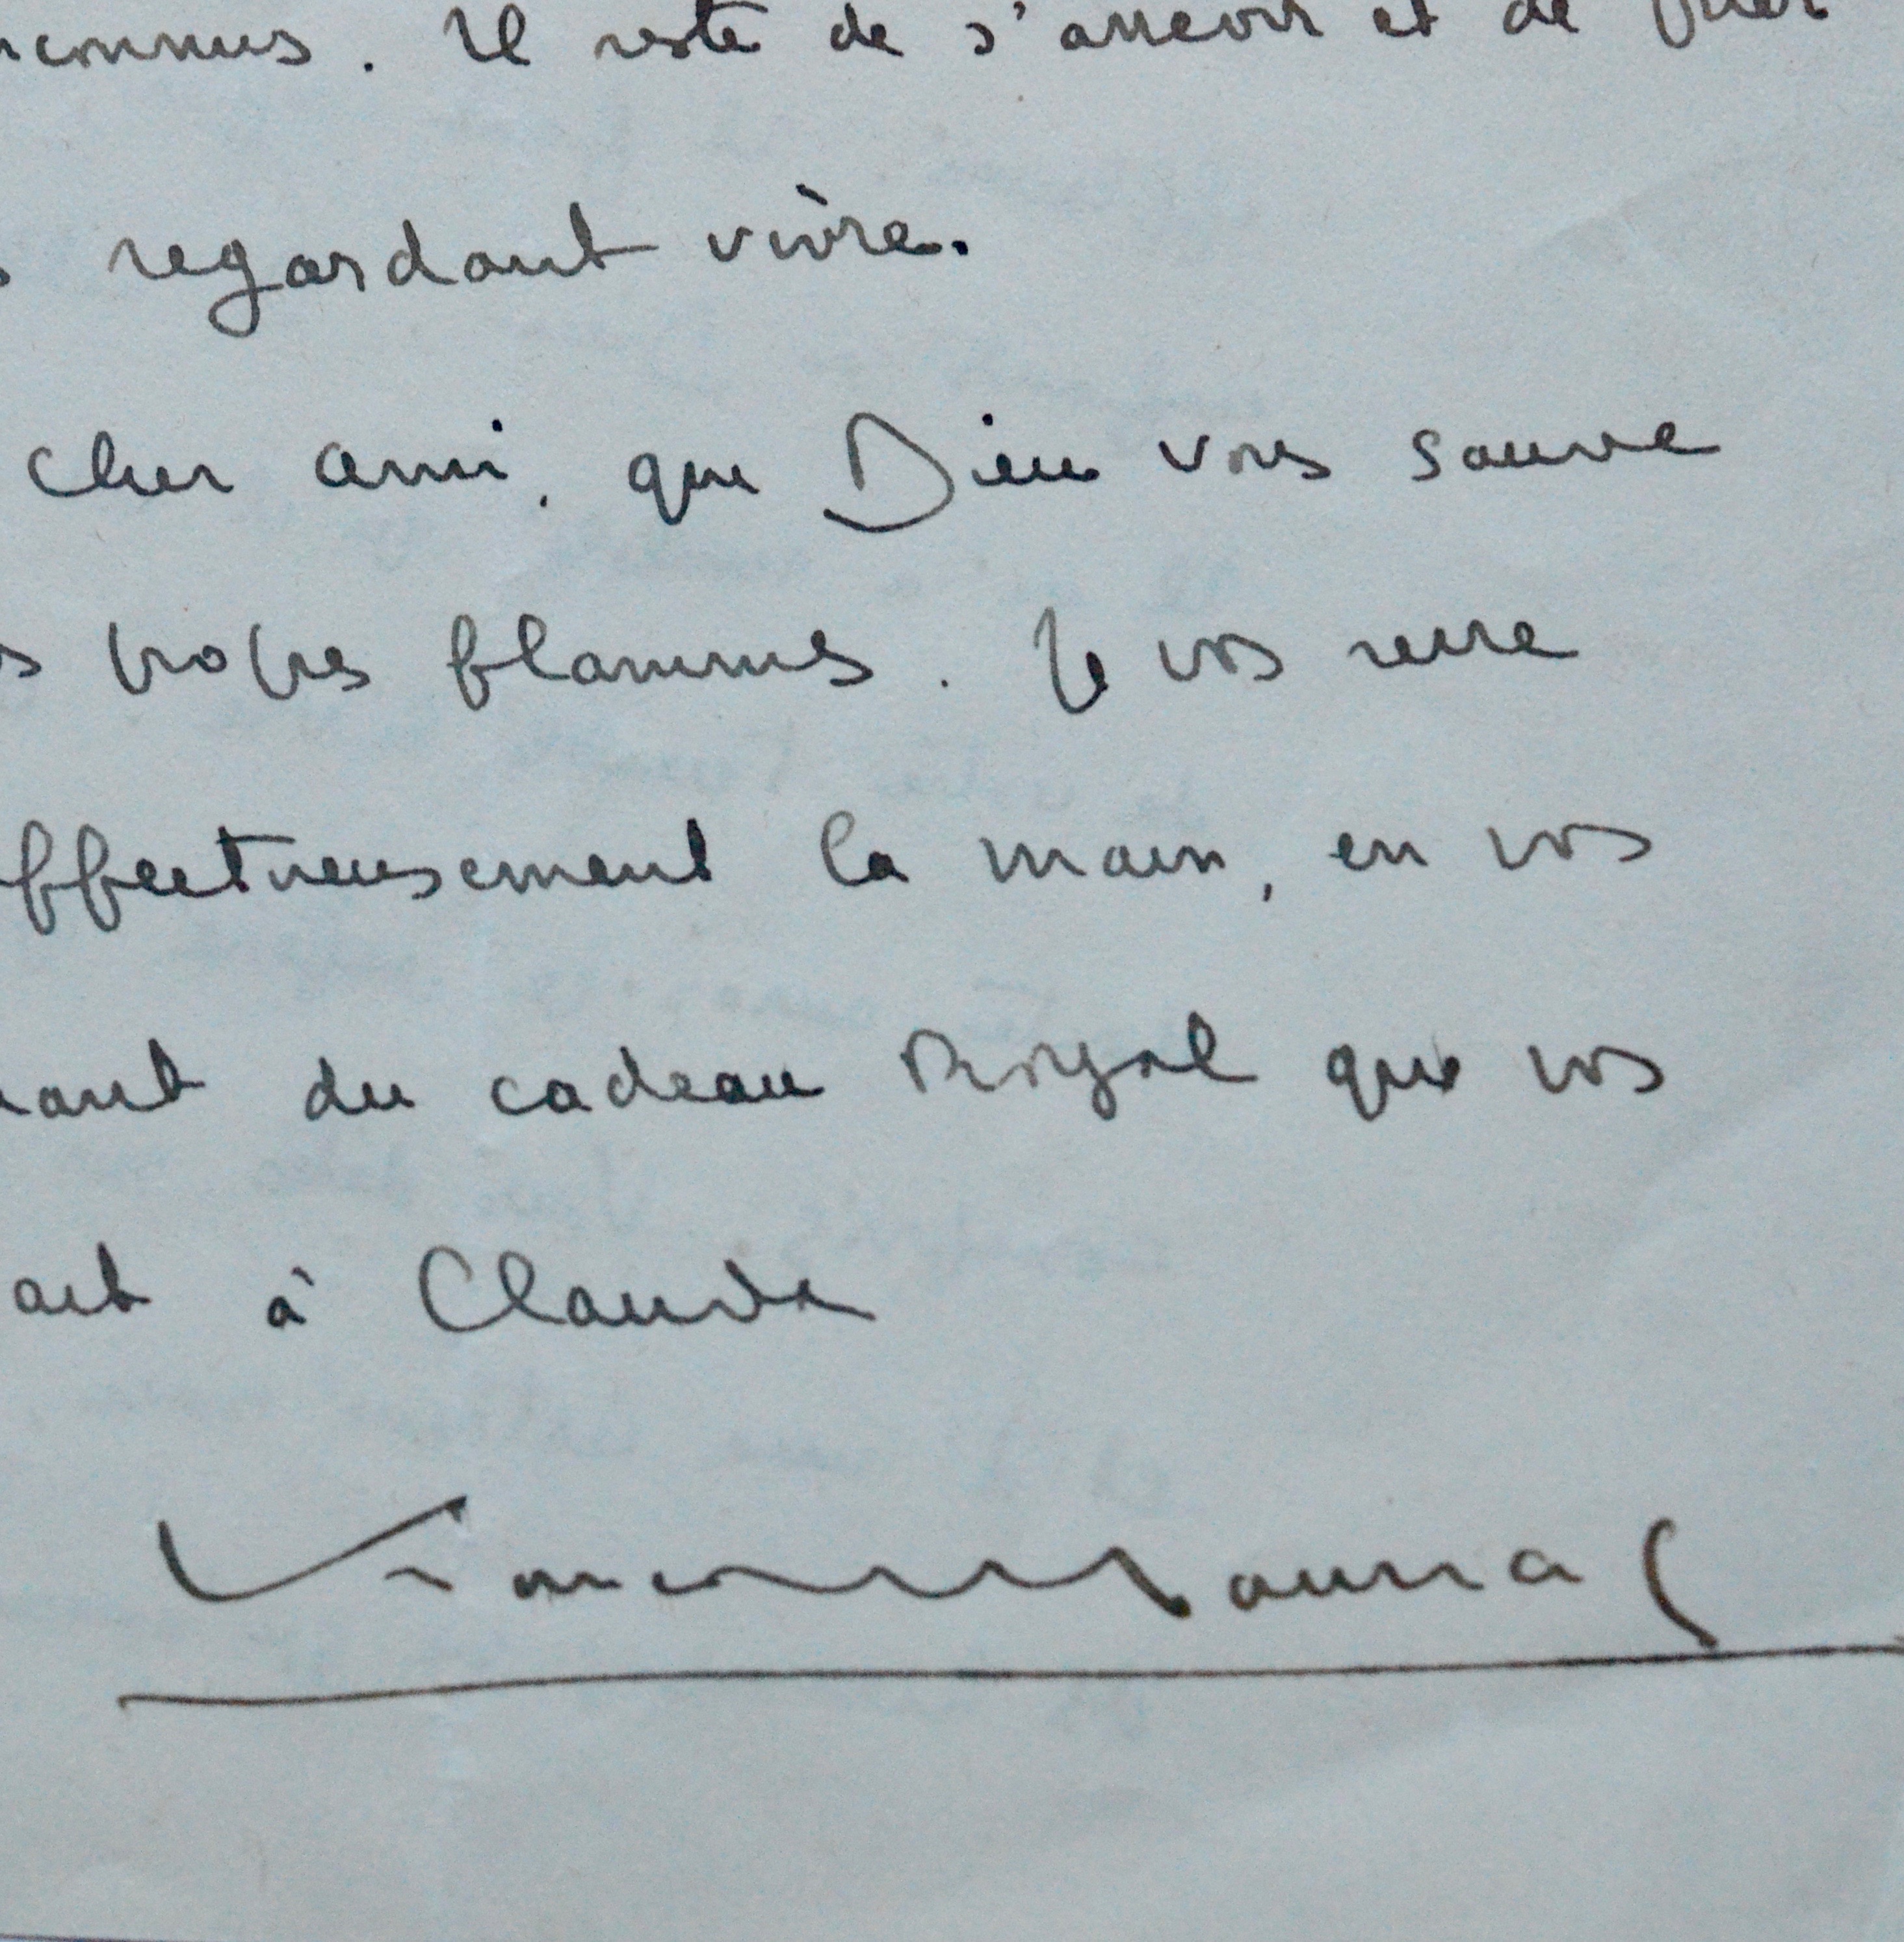 nconnus. Il reste de s'asseoir et de prier
s regardant vivre.
Cher ami, que Dieu vous sauve
s propres flammes. Je vos serre
ffectueusement la main, en vos
ant du cadeau Royal que vos
ait à Claude
François Mauriac